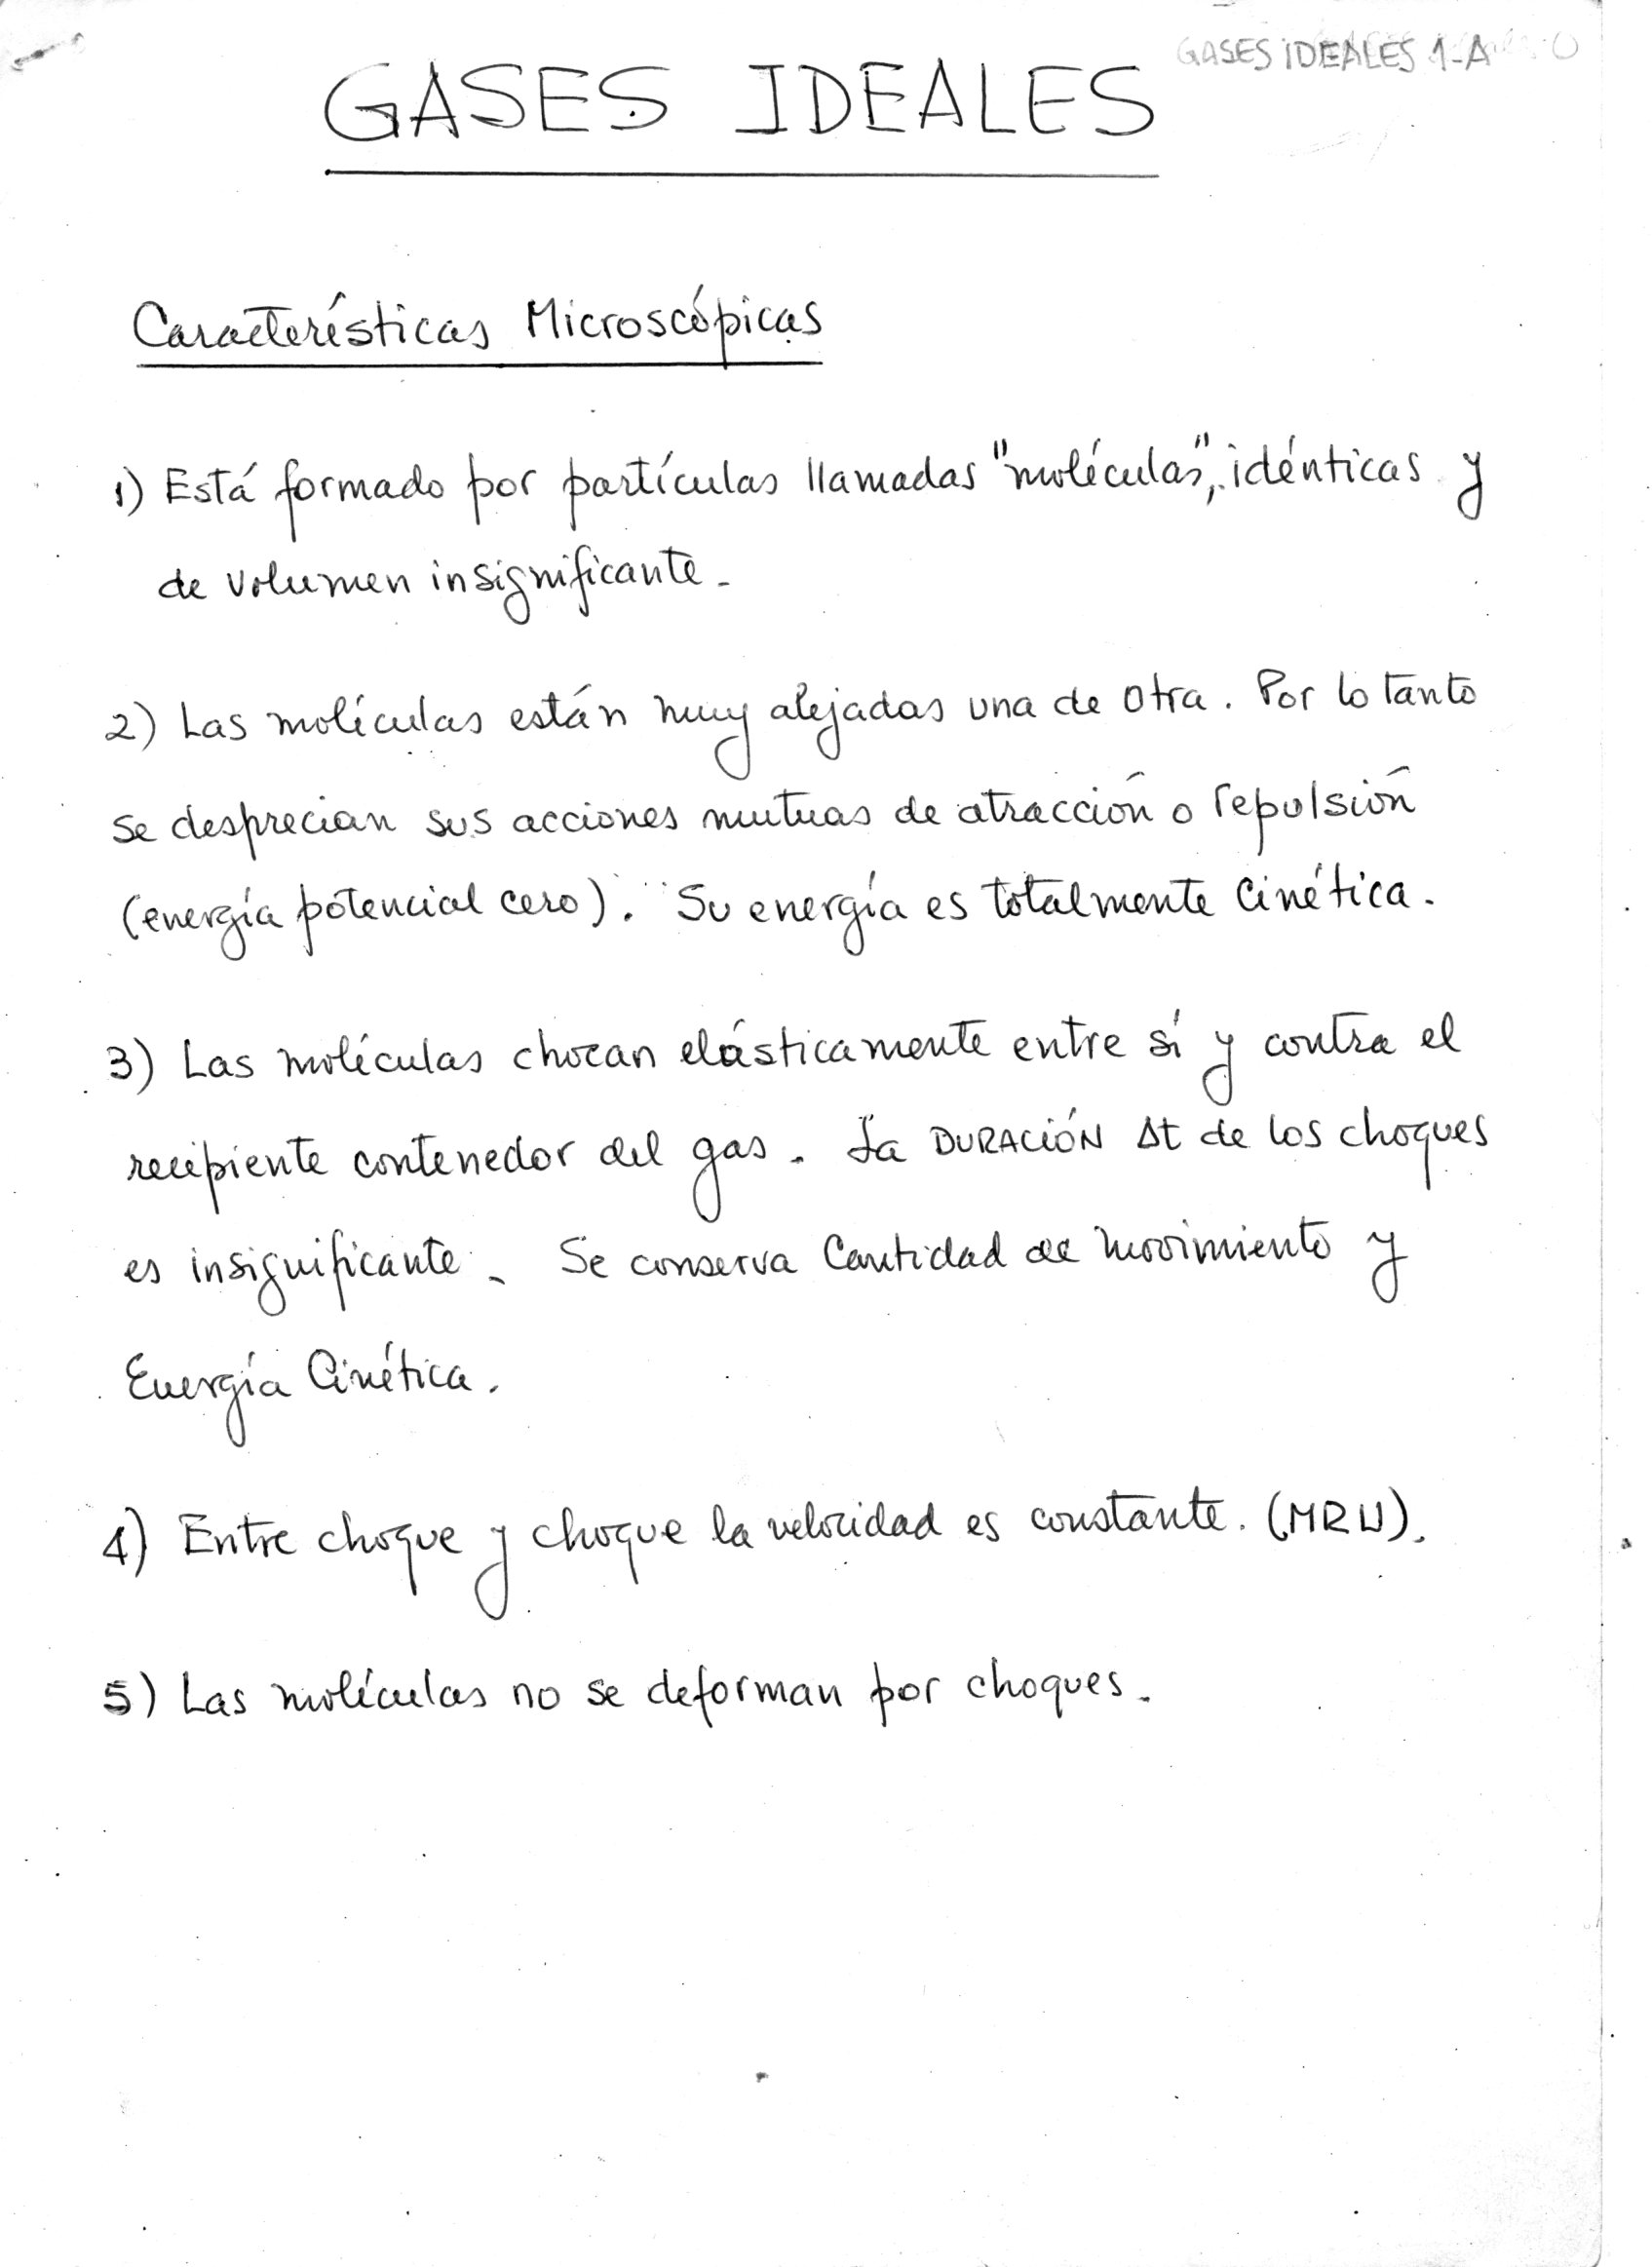 GASES IDEALES 1-A
GASES IDEALES
Características Microscópicas
1) Está formado por partículas llamadas "moléculas", idénticas y
de volumen insignificante.
2) Las moléculas están muy alejadas una de otra. Por lo tanto
se desprecian sus acciones mutuas de atracción o repulsión
(energía potencial cero). Su energía es totalmente Cinética.
3) Las moléculas chocan elásticamente entre sí y contra el
recipiente contenedor del gas. La DURACIÓN Δt de los choques
es insignificante. Se conserva Cantidad de Movimiento y
Energía Cinética.
4) Entre choque y choque la velocidad es constante. (MRU).
5) Las moléculas no se deforman por choques.